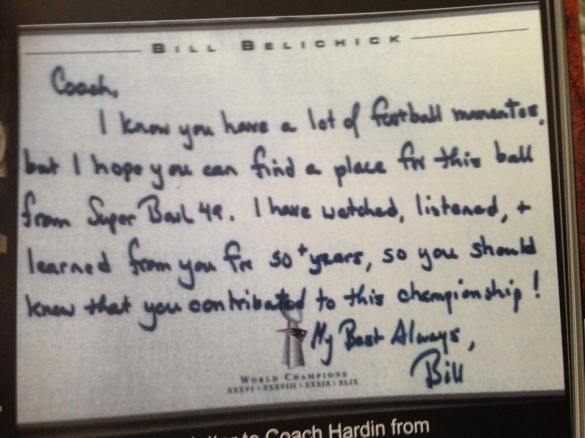 BILL BELICHICK
Coach,
I know you have a lot of football momentos,
but I hope you can find a place for this ball
from Super Bowl 49. I have watched, listened, +
learned from you for 50+ years, so you should
know that you contributed to this championship!
My Best Always,
Bill
WORLD CHAMPIONS
XXXVI | XXXVIII | XXXIX | XLIX
to Coach Hardin from